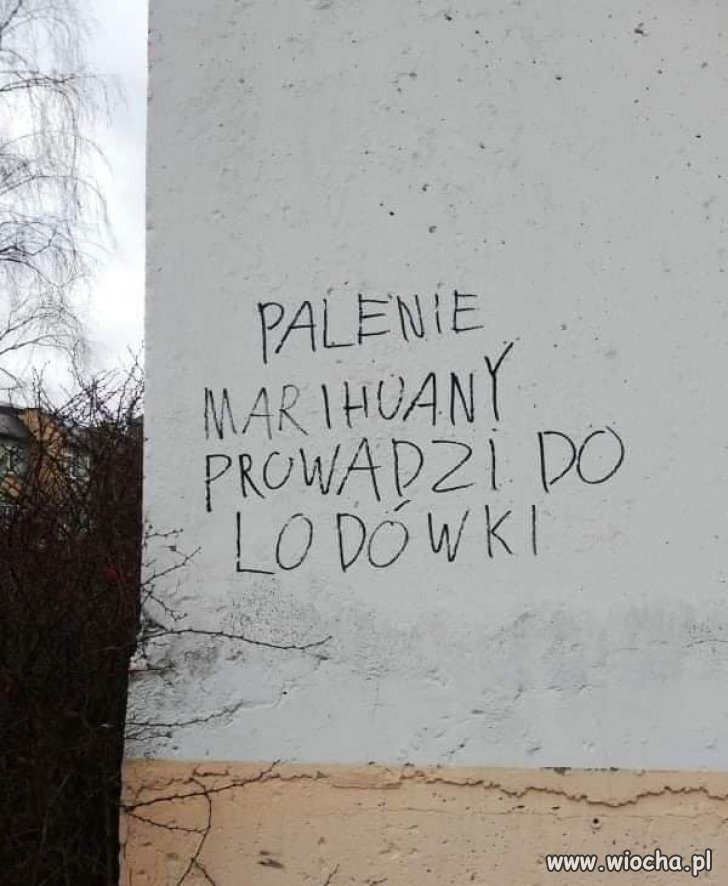 PALENIE
MARIHUANY
PROWADZI DO
LODÓWKI
www.wiocha.pl